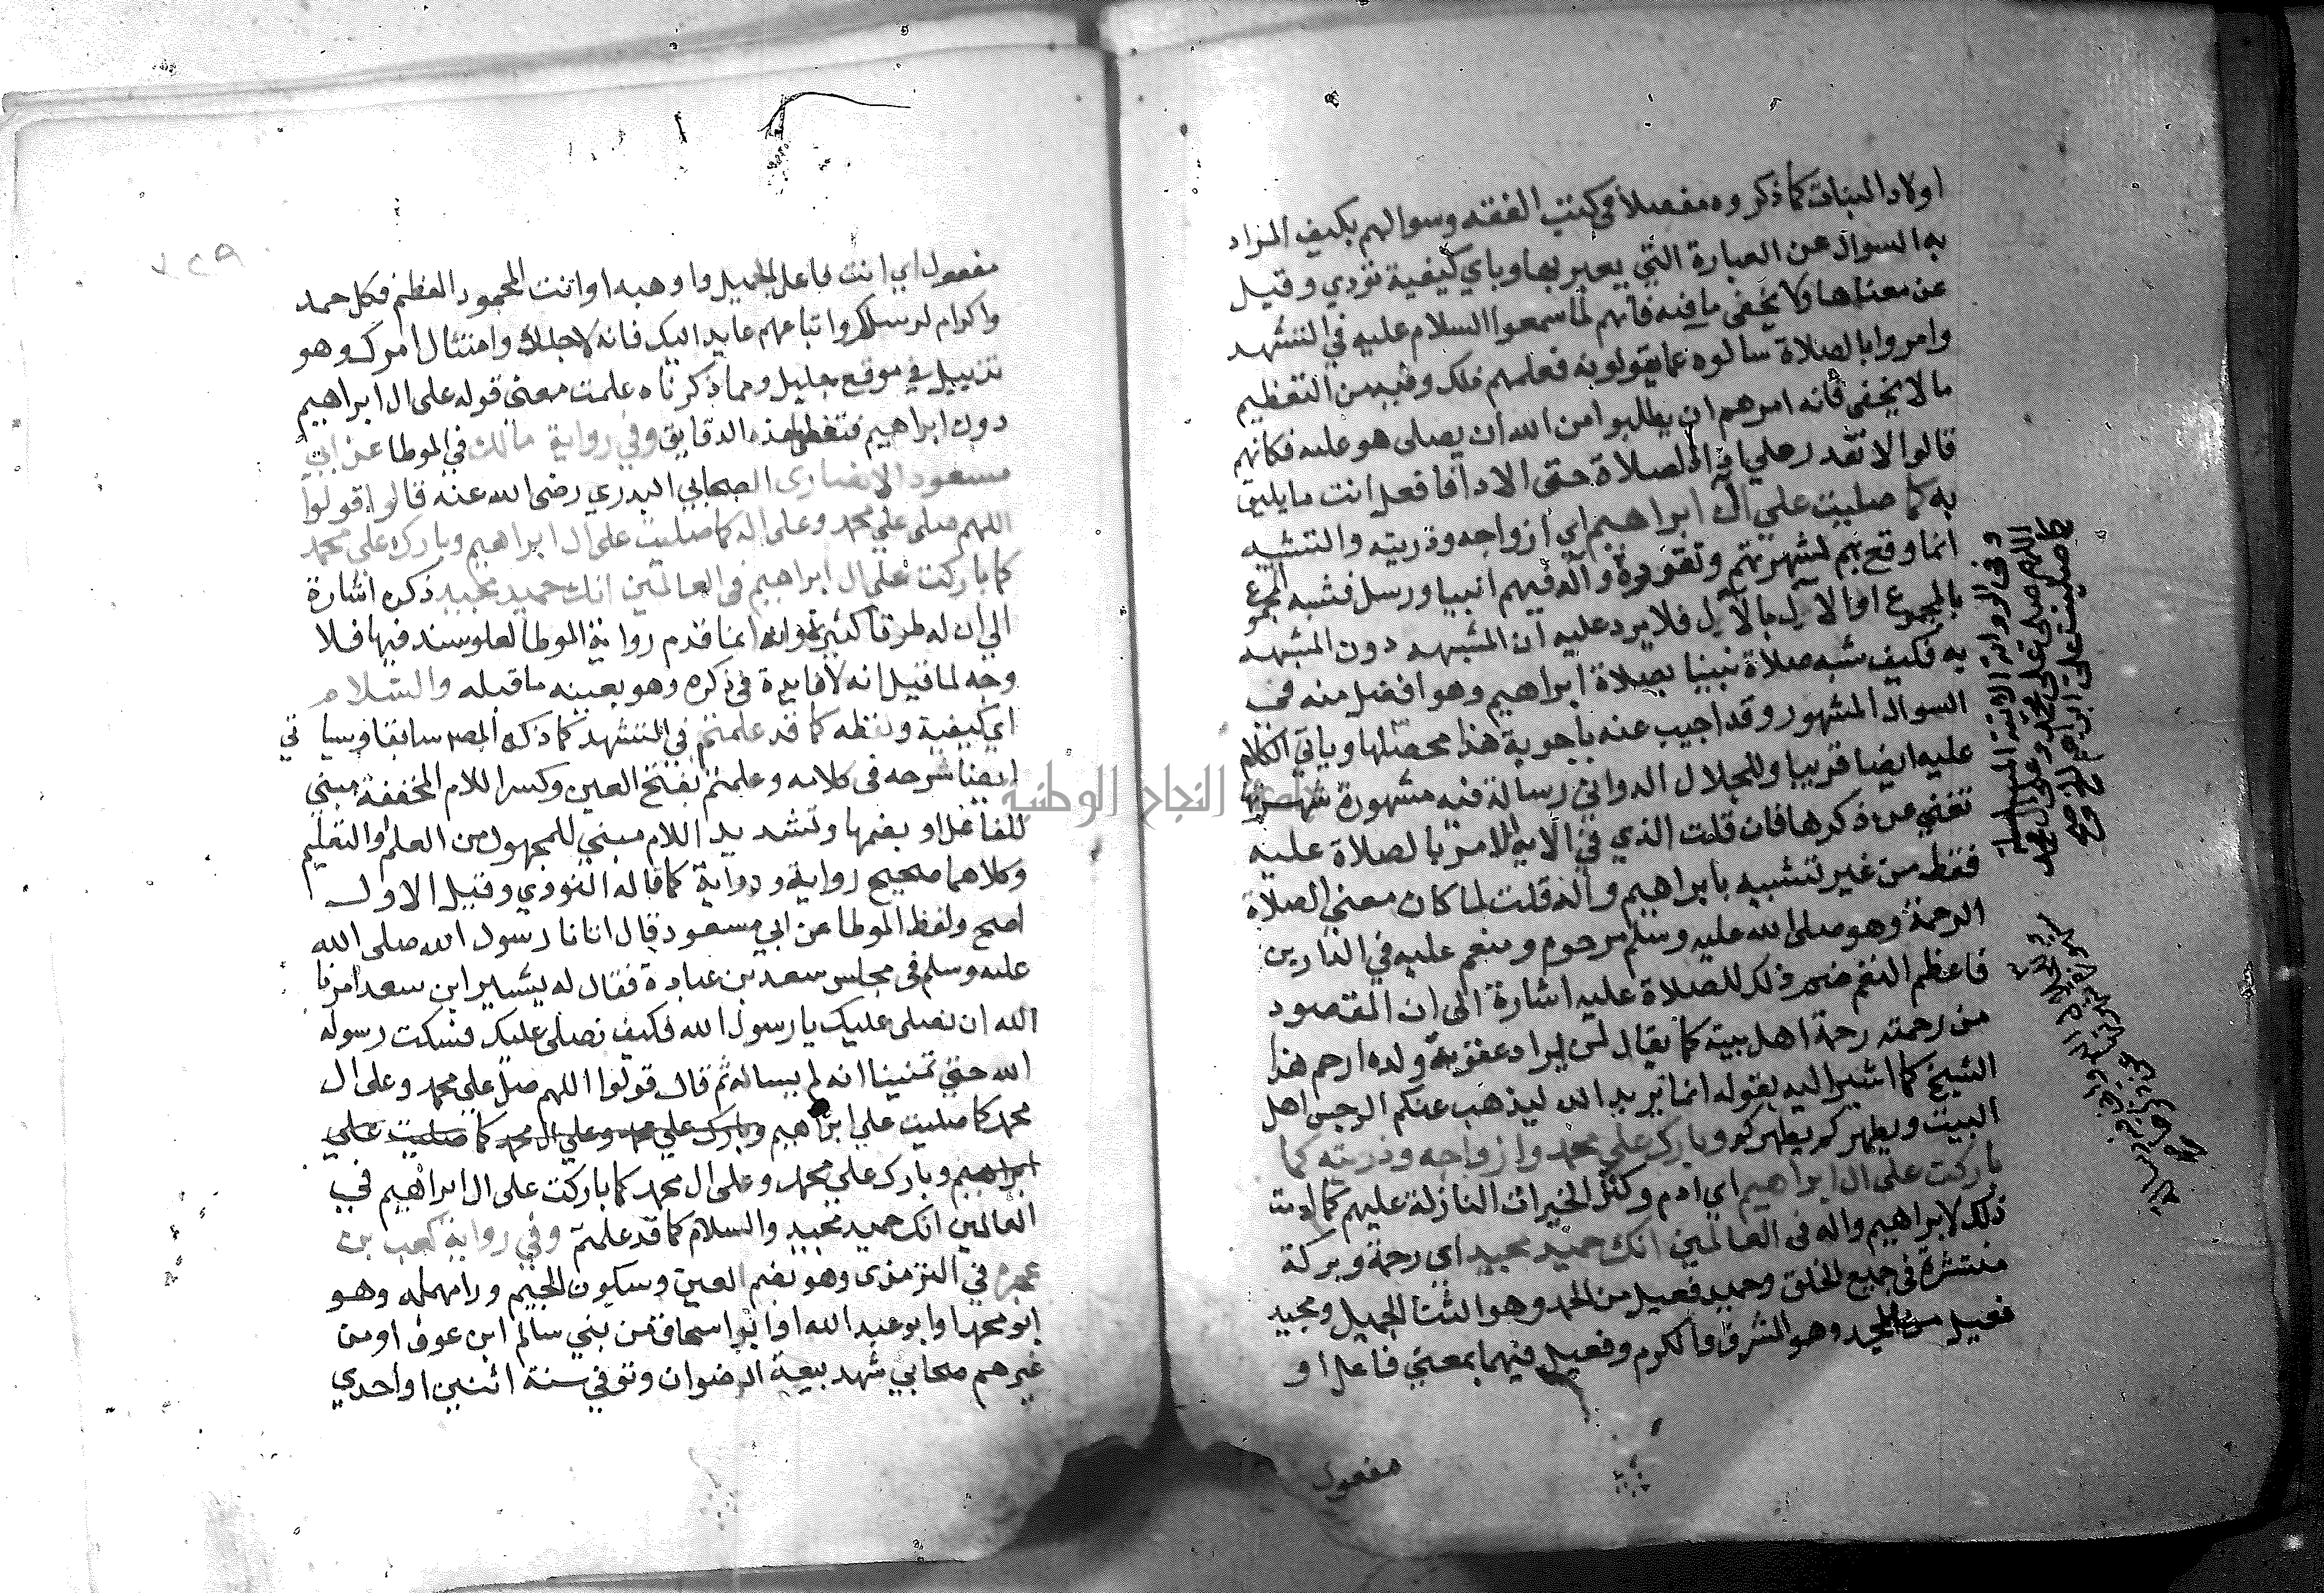 اولاد البنات كما ذكروه مفصلا في كتب الفقه وسوالهم بكيف المراد
به السوال عن العبارة التي يعبر بها وباي كيفية تودي وقيل
عن معناها ولا يخفى ما فيه فانهم لما سمعوا السلام عليه في التشهد
وامروا بالصلاة سالوه عما يقولونه فعلمهم ذلك وفيه من التعظيم
ما لا يخفى فانه امرهم ان يطلبوا من الله ان يصلى هو عليه فكانهم
قالوا لا نقدر على اداء الصلاة حق الاداء فافعل انت ما يليق
به كما صليت علي آل ابراهيم اي ازواجه وذريته والتشبيه
انما وقع بهم لشهرتهم وآله فيهم انبيا ورسل فشبه المجموع
بالمجموع او الآل بالآل فلا يرد عليه ان المشبه دون المشبه
به فكيف شبه صلاة نبينا بصلاة ابراهيم وهو افضل منه في
السوال المشهور وقد اجيب عنه باجوبة هذا محصلها وياتي الكلام
عليه ايضا قريبا وللجلال الدواني رسالة فيه مشهورة شهرتها
تغني عن ذكرها فان قلت الذي في الايه الامر بالصلاة عليه
فقط من غير تشبيه بابراهيم وآله قلت لما كان معني الصلاة
الرحمة وهو صلى الله عليه وسلم مرحوم ومنعم عليه في الدارين
فاعظم النعم ضم ذلك للصلاة عليه اشارة الى ان المقصود
من رحمته رحمة اهل بيته كما يقال لمن يراد عقوبة ولده ارحم هذا
الشيخ كما اشير اليه بقوله انما يريد الله ليذهب عنكم الرجس اهل
البيت ويطهركم تطهيرا وبارك علي محمد وازواجه وذريته كما
باركت على ال ابراهيم اي ادم وكثر الخيرات النازلة عليهم كما ادمت
ذلك لابراهيم واله في العالمين انك حميد مجيد اي رحمة وبركة
منتشرة في جميع الخلق وحميد فعيل من الحمد وهو الثنا الجميل ومجيد
فعيل من المجد وهو الشرف والكرم وفعيل فيهما بمعني فاعل او
مفعول
وفي الرواية
اللهم صلى على محمد وعلى ال محمد
كما صليت على ابراهيم
مفعول اي انت فاعل الجميل واوهبه او انت المحمود العظم فكل حمد
واكرام لرسلك واتباعهم عايد اليك فانه لاجلك وامتثال امرك وهو
تذييل في موقع جليل ومما ذكرناه علمت معني قوله على ال ابراهيم
دون ابراهيم فتفطن لهذه الدقايق وفي رواية مالك في الموطا عن ابي
مسعود الانصاري الصحابي البدري رضى الله عنه قالوا قولوا
اللهم صلى علي محمد وعلى اله كما صليت على ال ابراهيم وبارك على محمد
كما باركت على ال ابراهيم في العالمين انك حميد مجيد ذكره اشارة
الي ان له طرقا كثيرة وانه انما قدم رواية الموطا لعلو سند فيها فلا
وجه لما قيل انه لا فايدة في ذكره وهو بعينه ما قبله والسلام
اي كيفية ولفظه كما قد علمتم في التشهد كما ذكره المص سابقا وسياتي
ايضا شرحه في كلامه وعلمتم بفتح العين وكسر اللام المخففة مبني
للفاعل او بضمها وتشديد اللام مبني للمجهول من العلم او التعليم
وكلاهما صحيح رواية ودراية كما قاله النووي وقيل الاول
اصح ولفظ الموطا عن ابي مسعود قال اتانا رسول الله صلى الله
عليه وسلم في مجلس سعد بن عبادة فقال له بشير ابن سعد امرنا
الله ان نصلى عليك يا رسول الله فكيف نصلى عليك فسكت رسول
الله حتي تمنينا انه لم يساله ثم قال قولوا اللهم صل على محمد وعلى ال
محمد كما صليت علي ابراهيم وبارك علي محمد وعلي ال محمد كما صليت علي
ابراهيم وبارك على محمد وعلى ال محمد كما باركت على ال ابراهيم في
العالمين انك حميد مجيد والسلام كما قد علمتم وفي رواية كعب بن
عجرة في الترمذى وهو بضم العين وسكون الجيم ورا مهمله وهو
ابو محمد او ابو عبد الله او ابو اسحاق من بني سالم ابن عوف او من
غيرهم صحابي شهد بيعة الرضوان وتوفي سنة اثنين او احدي
النجاح الوطنية